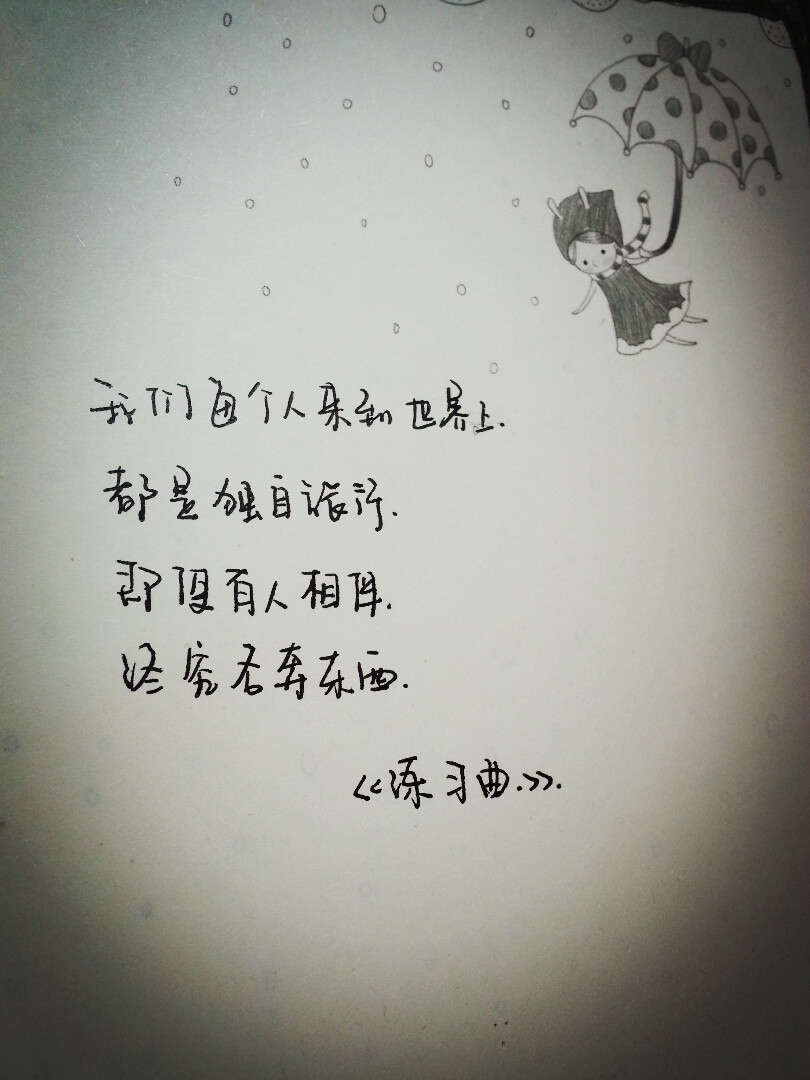 我们每个人来到世界上.
都是独自旅行.
即便有人相伴.
终究各奔东西.
《练习曲.》.